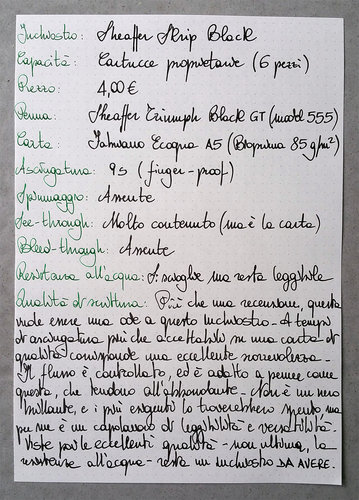 Inchiostro: Sheaffer Skrip Black
Capacità: Cartucce proprietarie (6 pezzi)
Prezzo: 4,00 €
Penna: Sheaffer Triumph Black GT (model 555)
Carta: Fabriano Ecoqua A5 (Bioprima 85 g/m²)
Asciugatura: 9s (finger-proof)
Spiumaggio: Assente
See-through: Molto contenuto (ma è la carta)
Bleed-through: Assente
Resistenza all'acqua: Si scioglie ma resta leggibile
Qualità di scrittura: Più che una recensione, questa
vuole essere una ode a questo inchiostro - A tempi
di asciugatura più che accettabili su una carta di
qualità corrisponde una eccellente scorrevolezza -
Il flusso è controllato, ed è adatto a penne come
questa, che tendono all'abbondante - Non è un nero
brillante, e i più esigenti lo troverebbero spento, ma
per me è un capolavoro di leggibilità e versatilità -
Viste poi le eccellenti qualità - non ultima, la
resistenza all'acqua - resta un inchiostro DA AVERE.